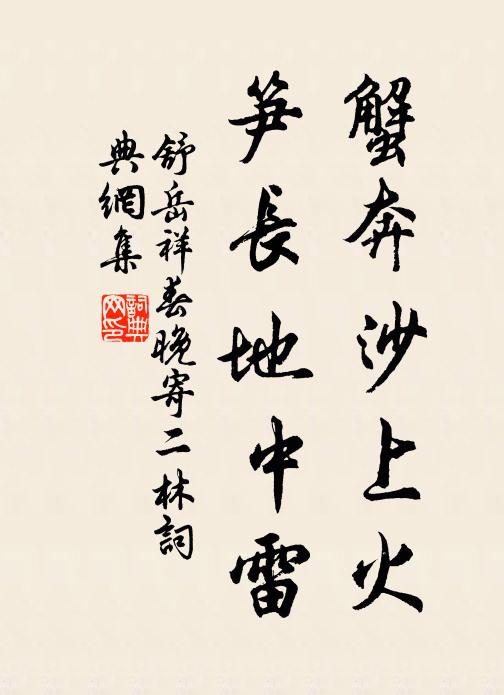 蟹奔沙上火
笋長地中雷
舒岳祥春晚寄二林詞
典網集
詞典網印